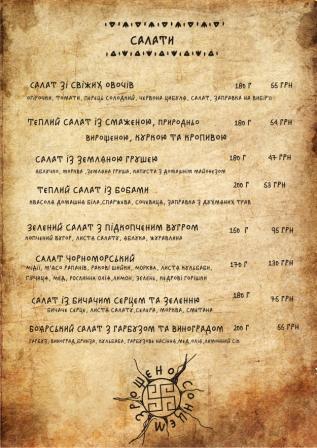 САЛАТИ
САЛАТ ЗІ СВІЖИХ ОВОЧІВ 180 Г 55 ГРН
ОГІРОЧКИ, ТОМАТИ, ПЕРЕЦЬ СОЛОДКИЙ, ЧЕРВОНА ЦИБУЛЯ, САЛАТ, ЗАПРАВКА НА ВИБІР
ТЕПЛИЙ САЛАТ ІЗ СМАЖЕНОЮ, ПРИРОДНЬО 180 Г 54 ГРН
ВИРОЩЕНОЮ, КУРКОЮ ТА КРОПИВОЮ
САЛАТ ІЗ ЗЕМЛЯНОЮ ГРУШЕЮ 180 Г 47 ГРН
ЯБЛУЧКО, МОРКВА, ЗЕМЛЯНА ГРУША, КАПУСТА З ДОМАШНІМ МАЙОНЕЗОМ
ТЕПЛИЙ САЛАТ ІЗ БОБАМИ 200 Г 53 ГРН
КВАСОЛЯ ДОМАШНЯ БІЛА, СПАРЖЕВА, СОЧЕВИЦЯ, ЗАПРАВКА З ДУХМЯНИХ ТРАВ
ЗЕЛЕНИЙ САЛАТ З ПІДКОПЧЕНИМ ВУГРОМ 150 Г 95 ГРН
КОПЧЕНИЙ ВУГОР, ЛИСТЯ САЛАТУ, ЯБЛУКА, ЖУРАВЛИНА
САЛАТ ЧОРНОМОРСЬКИЙ 170 Г 130 ГРН
МІДІЇ, М'ЯСО РАПАНІВ, РАКОВІ ШИЙКИ, МОРКВА, ЛИСТЯ КУЛЬБАБИ,
ГІРЧИЦЯ, МЕД, РОСЛИННА ОЛІЯ, ЛИМОН, ЗЕЛЕНЬ, КЕДРОВІ ГОРІШКИ
САЛАТ ІЗ БИЧАЧИМ СЕРЦЕМ ТА ЗЕЛЕННЮ 180 Г 75 ГРН
БИЧАЧЕ СЕРЦЕ, ЛИСТЯ САЛАТУ, СЕЛЕРА, МОРКВА, СМЕТАНА
БОЯРСЬКИЙ САЛАТ З ГАРБУЗОМ ТА ВИНОГРАДОМ 200 Г 55 ГРН
ГАРБУЗ, ВИНОГРАД, БРИНЗА, КУЛЬБАБА, ГАРБУЗОВЕ НАСІННЯ, МЕД, ОЛІЯ, ЛИМОННИЙ СІК
ЗРОЩЕНО СОНЦЕМ